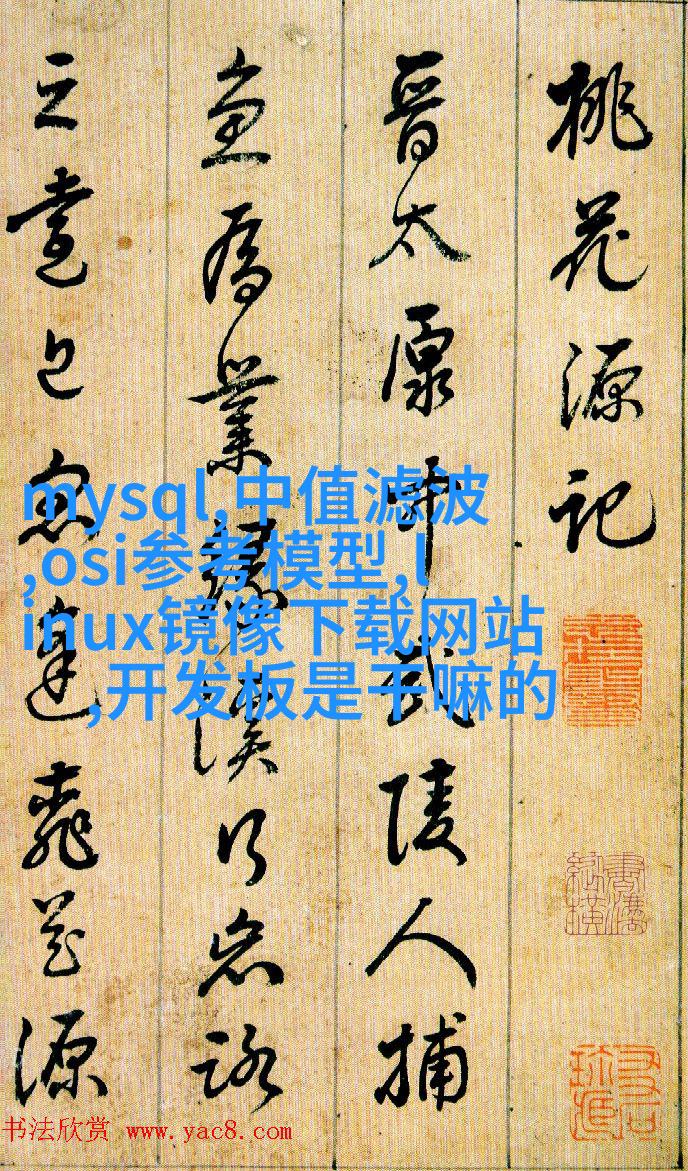 桃花源記
晉太原中武陵人捕
魚為業緣溪行忘路
之遠近忽逢桃花源
mysql,中值滤波
,osi参考模型,l
inux镜像下载网站
,开发板是干嘛的
书法欣赏 www.yac8.com